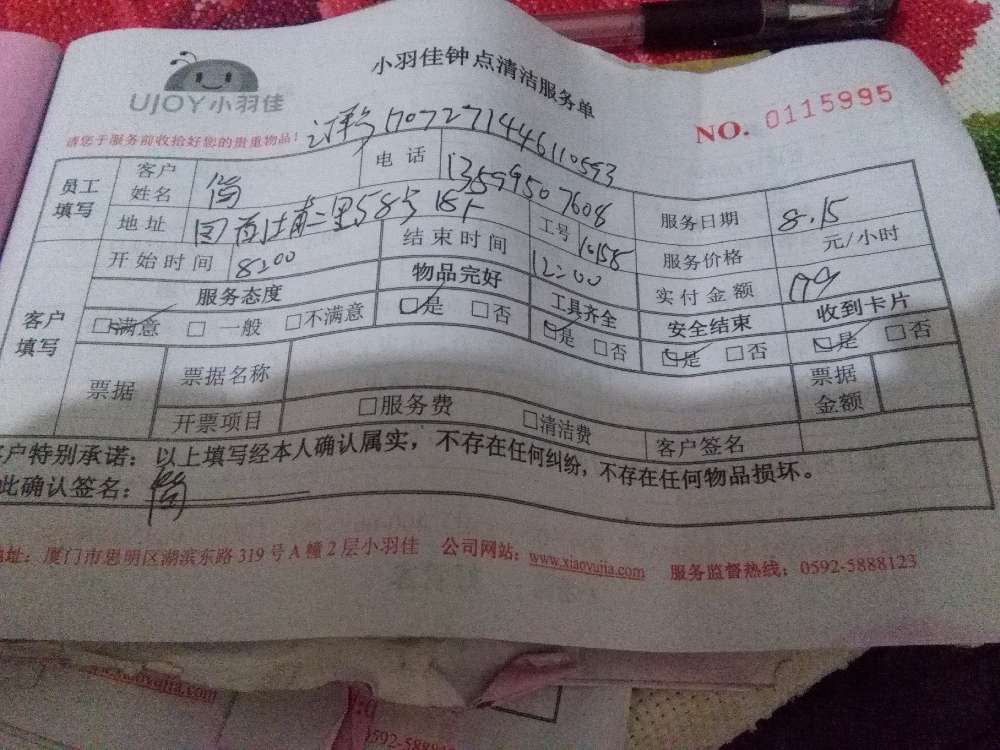 UJOY小羽佳
小羽佳钟点清洁服务单
NO. 0115995
请您于服务前收拾好您的贵重物品!
订单号1707271446110593
员工填写 客户姓名 简 电话 13599507608 服务日期 8.15
地址 里58号 工号 10158 服务价格 元/小时
客户填写 开始时间 8:00 结束时间 12:00 实付金额
服务态度 物品完好 工具齐全 安全结束 收到卡片
□满意 □一般 □不满意 □是 □否 □是 □否 □是 □否 □是 □否
票据 票据名称 票据金额
开票项目 □服务费 □清洁费 客户签名
客户特别承诺:以上填写经本人确认属实,不存在任何纠纷,不存在任何物品损坏。
此确认签名: 简
地址:厦门市思明区湖滨东路319号A幢2层小羽佳 公司网站:www.xiaoyujia.com 服务监督热线:0592-5888123
www.xiaoyujia.com
0592-58881